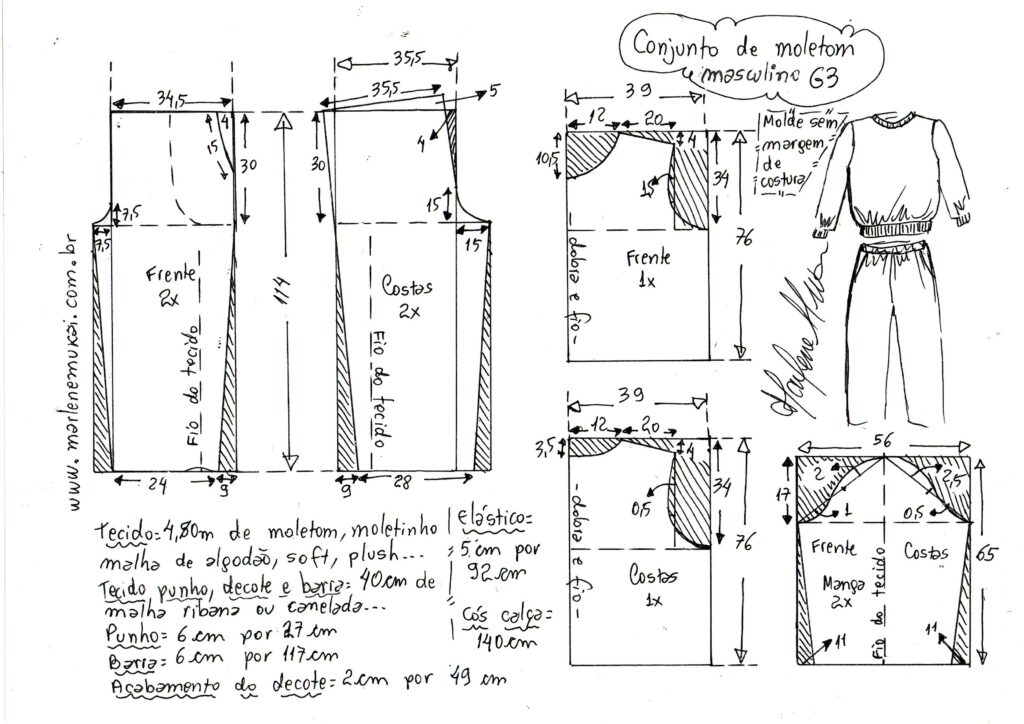 Conjunto de moletom
masculino G3
Molde sem
margem
de
costura
www.marlenemukai.com.br
34,5
4
15
30
7,5
7,5
Frente
2x
Fio do tecido
24
9
114
35,5
35,5
5
4
30
15
15
Costas
2x
Fio do tecido
9
28
39
12
20
10,5
4
15
34
76
Frente
1x
- dobra e fio -
39
12
20
3,5
4
0,5
34
76
Costas
1x
- dobra e fio -
56
17
2
2,5
1
0,5
65
Frente
Costas
Manga
2x
Fio do tecido
11
11
Tecido = 4,80m de moletom, moletinho
malha de algodão, soft, plush...
Tecido punho, decote e barra = 40cm de
malha ribana ou canelada...
Punho = 6cm por 27cm
Barra = 6cm por 117cm
Acabamento do decote = 2cm por 49 cm
Elástico =
= 5cm por
92cm
Cós calça =
140cm